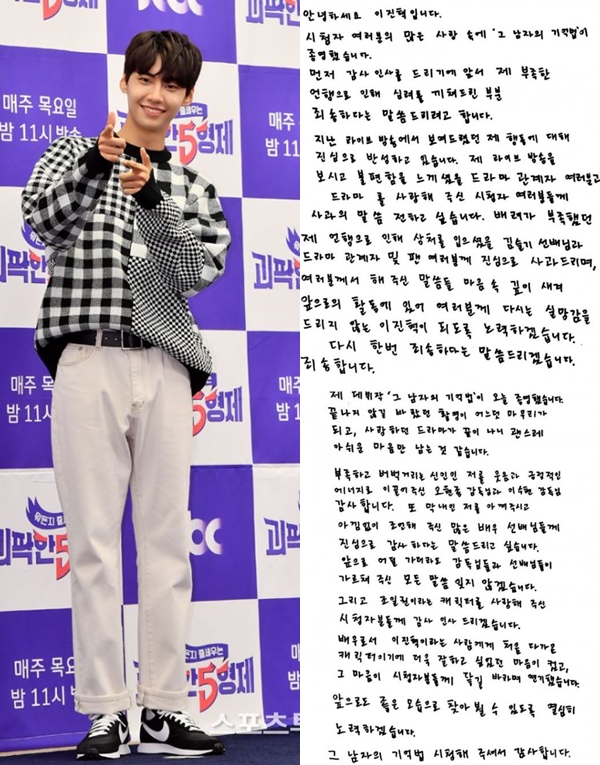 매주 목요일
밤 11시 방송
줄세우는
괴팍한5형제
매주 목요일
밤 11시
매주 목요
밤 11시 방
뭐든지 줄세우는
괴팍한5형제
스포츠
안녕하세요 이진혁입니다.
시청자 여러분의 많은 사랑 속에 '그 남자의 기억법'이
종영했습니다.
먼저 감사 인사를 드리기에 앞서 제 부족한
언행으로 인해 심려를 끼쳐드린 부분
죄송하다는 말씀드리려고 합니다.
지난 라이브 방송에서 보여드렸던 제 행동에 대해
진심으로 반성하고 있습니다. 제 라이브 방송을
보시고 불편함을 느끼셨을 드라마 관계자 여러분과
드라마를 사랑해 주신 시청자 여러분들께
사과의 말씀 전하고 싶습니다. 배려가 부족했던
제 언행으로 인해 상처를 입으셨을 김슬기 선배님과
드라마 관계자 및 팬 여러분께 진심으로 사과드리며,
여러분께서 해 주신 말씀들 마음 속 깊이 새겨
앞으로의 활동에 있어 여러분께 다시는 실망감을
드리지 않는 이진혁이 되도록 노력하겠습니다.
다시 한번 죄송하다는 말씀드리겠습니다.
죄송합니다.
제 데뷔작 '그 남자의 기억법'이 오늘 종영했습니다.
끝나지 않길 바랐던 촬영이 어느덧 마무리가
되고, 사랑하던 드라마가 끝이 나니 괜스레
아쉬운 마음만 남는 것 같습니다.
부족하고 버벅거리는 신인인 저를 웃음과 긍정적인
에너지로 이끌어주신 오현종 감독님과 이수현 감독님
감사합니다. 또 막내인 저를 아껴주시고
아낌없이 조언해 주신 많은 배우 선배님들께
진심으로 감사하다는 말씀드리고 싶습니다.
앞으로 어딜 가더라도 감독님들과 선배님들이
가르쳐 주신 모든 말씀 잊지 않겠습니다.
그리고 조일권이라는 캐릭터를 사랑해 주신
시청자분들께 감사 인사 드리겠습니다.
배우로서 이진혁이라는 사람에게 처음 다가온
캐릭터이기에 더욱 잘하고 싶었던 마음이 컸고,
그 마음이 시청자분들께 닿길 바라며 연기했습니다.
앞으로도 좋은 모습으로 찾아 뵐 수 있도록 열심히
노력하겠습니다.
그 남자의 기억법 시청해 주셔서 감사합니다.